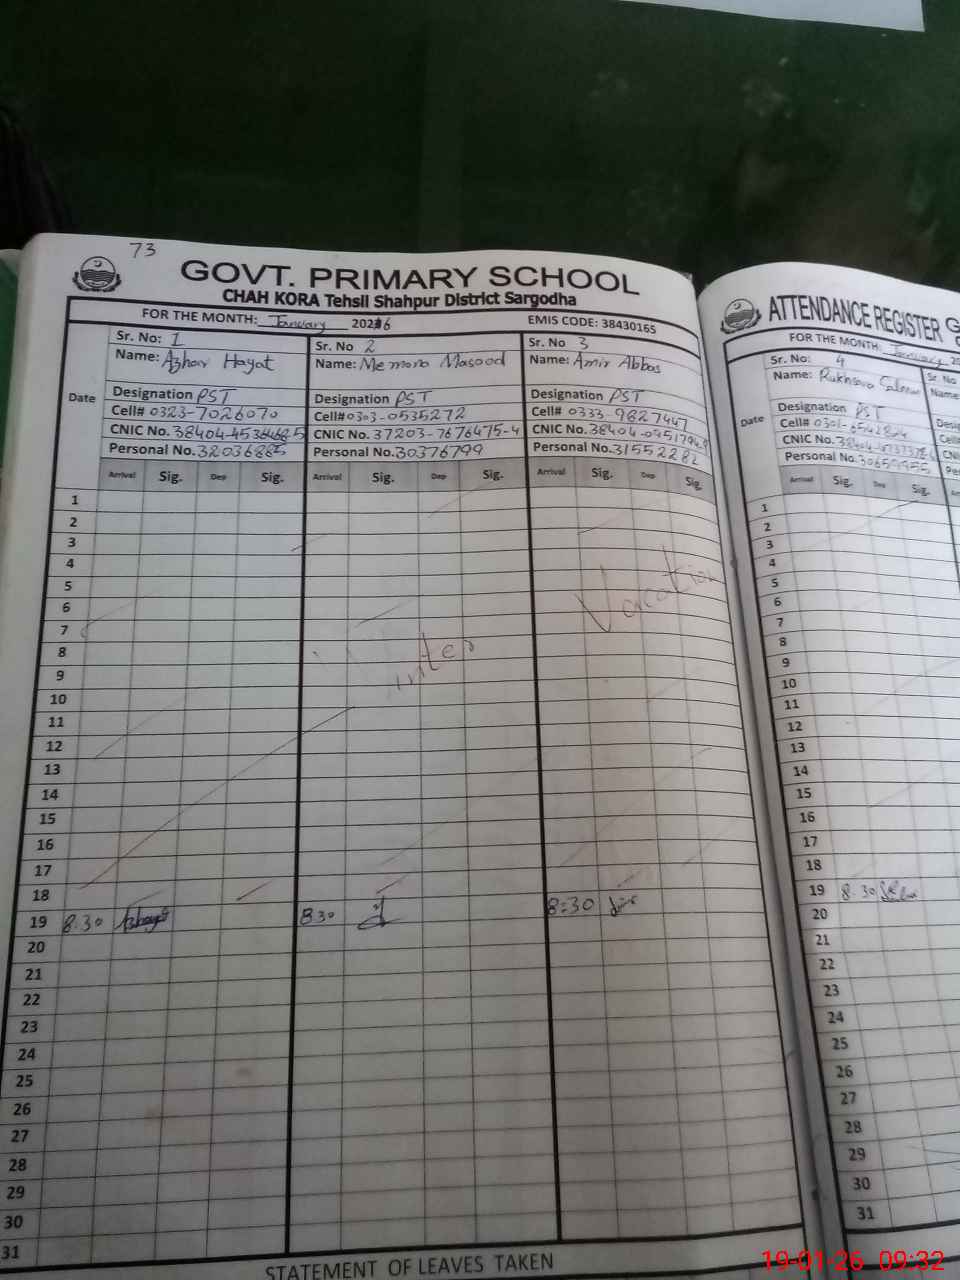 73
GOVT. PRIMARY SCHOOL
CHAH KORA Tehsil Shahpur District Sargodha
FOR THE MONTH: January 2026 EMIS CODE: 38430165
Date
Sr. No: 1
Name: Azhar Hayat
Designation PST
Cell# 0323-7026070
CNIC No.
Personal No. 32036885
Sr. No 2
Name: Memona Masood
Designation PST
Cell# 0303-0535272
CNIC No. 37203-7676475-4
Personal No. 30376799
Sr. No 3
Name: Amir Abbas
Designation PST
Cell# 0333-9827447
CNIC No. 38404
Personal No. 31552282
Arrival Sig. Dep Sig. Arrival Sig. Dep Sig. Arrival Sig. Dep Sig.
1
2
3
4
5
6
7
8
9
10
11
12
13
14
15
16
17
18
Winter Vacation
19 8:30 8:30 8:30
20
21
22
23
24
25
26
27
28
29
30
31
STATEMENT OF LEAVES TAKEN
ATTENDANCE REGISTER
FOR THE MONTH: January 20
Date
Sr. No: 4
Name: Rukhsana
Designation PST
Cell#
CNIC No.
Personal No. 30659955
Sr. No
Name:
Arrival Sig. Dep Sig.
1
2
3
4
5
6
7
8
9
10
11
12
13
14
15
16
17
18
19 8:30
20
21
22
23
24
25
26
27
28
29
30
31
19-01-26 09:32